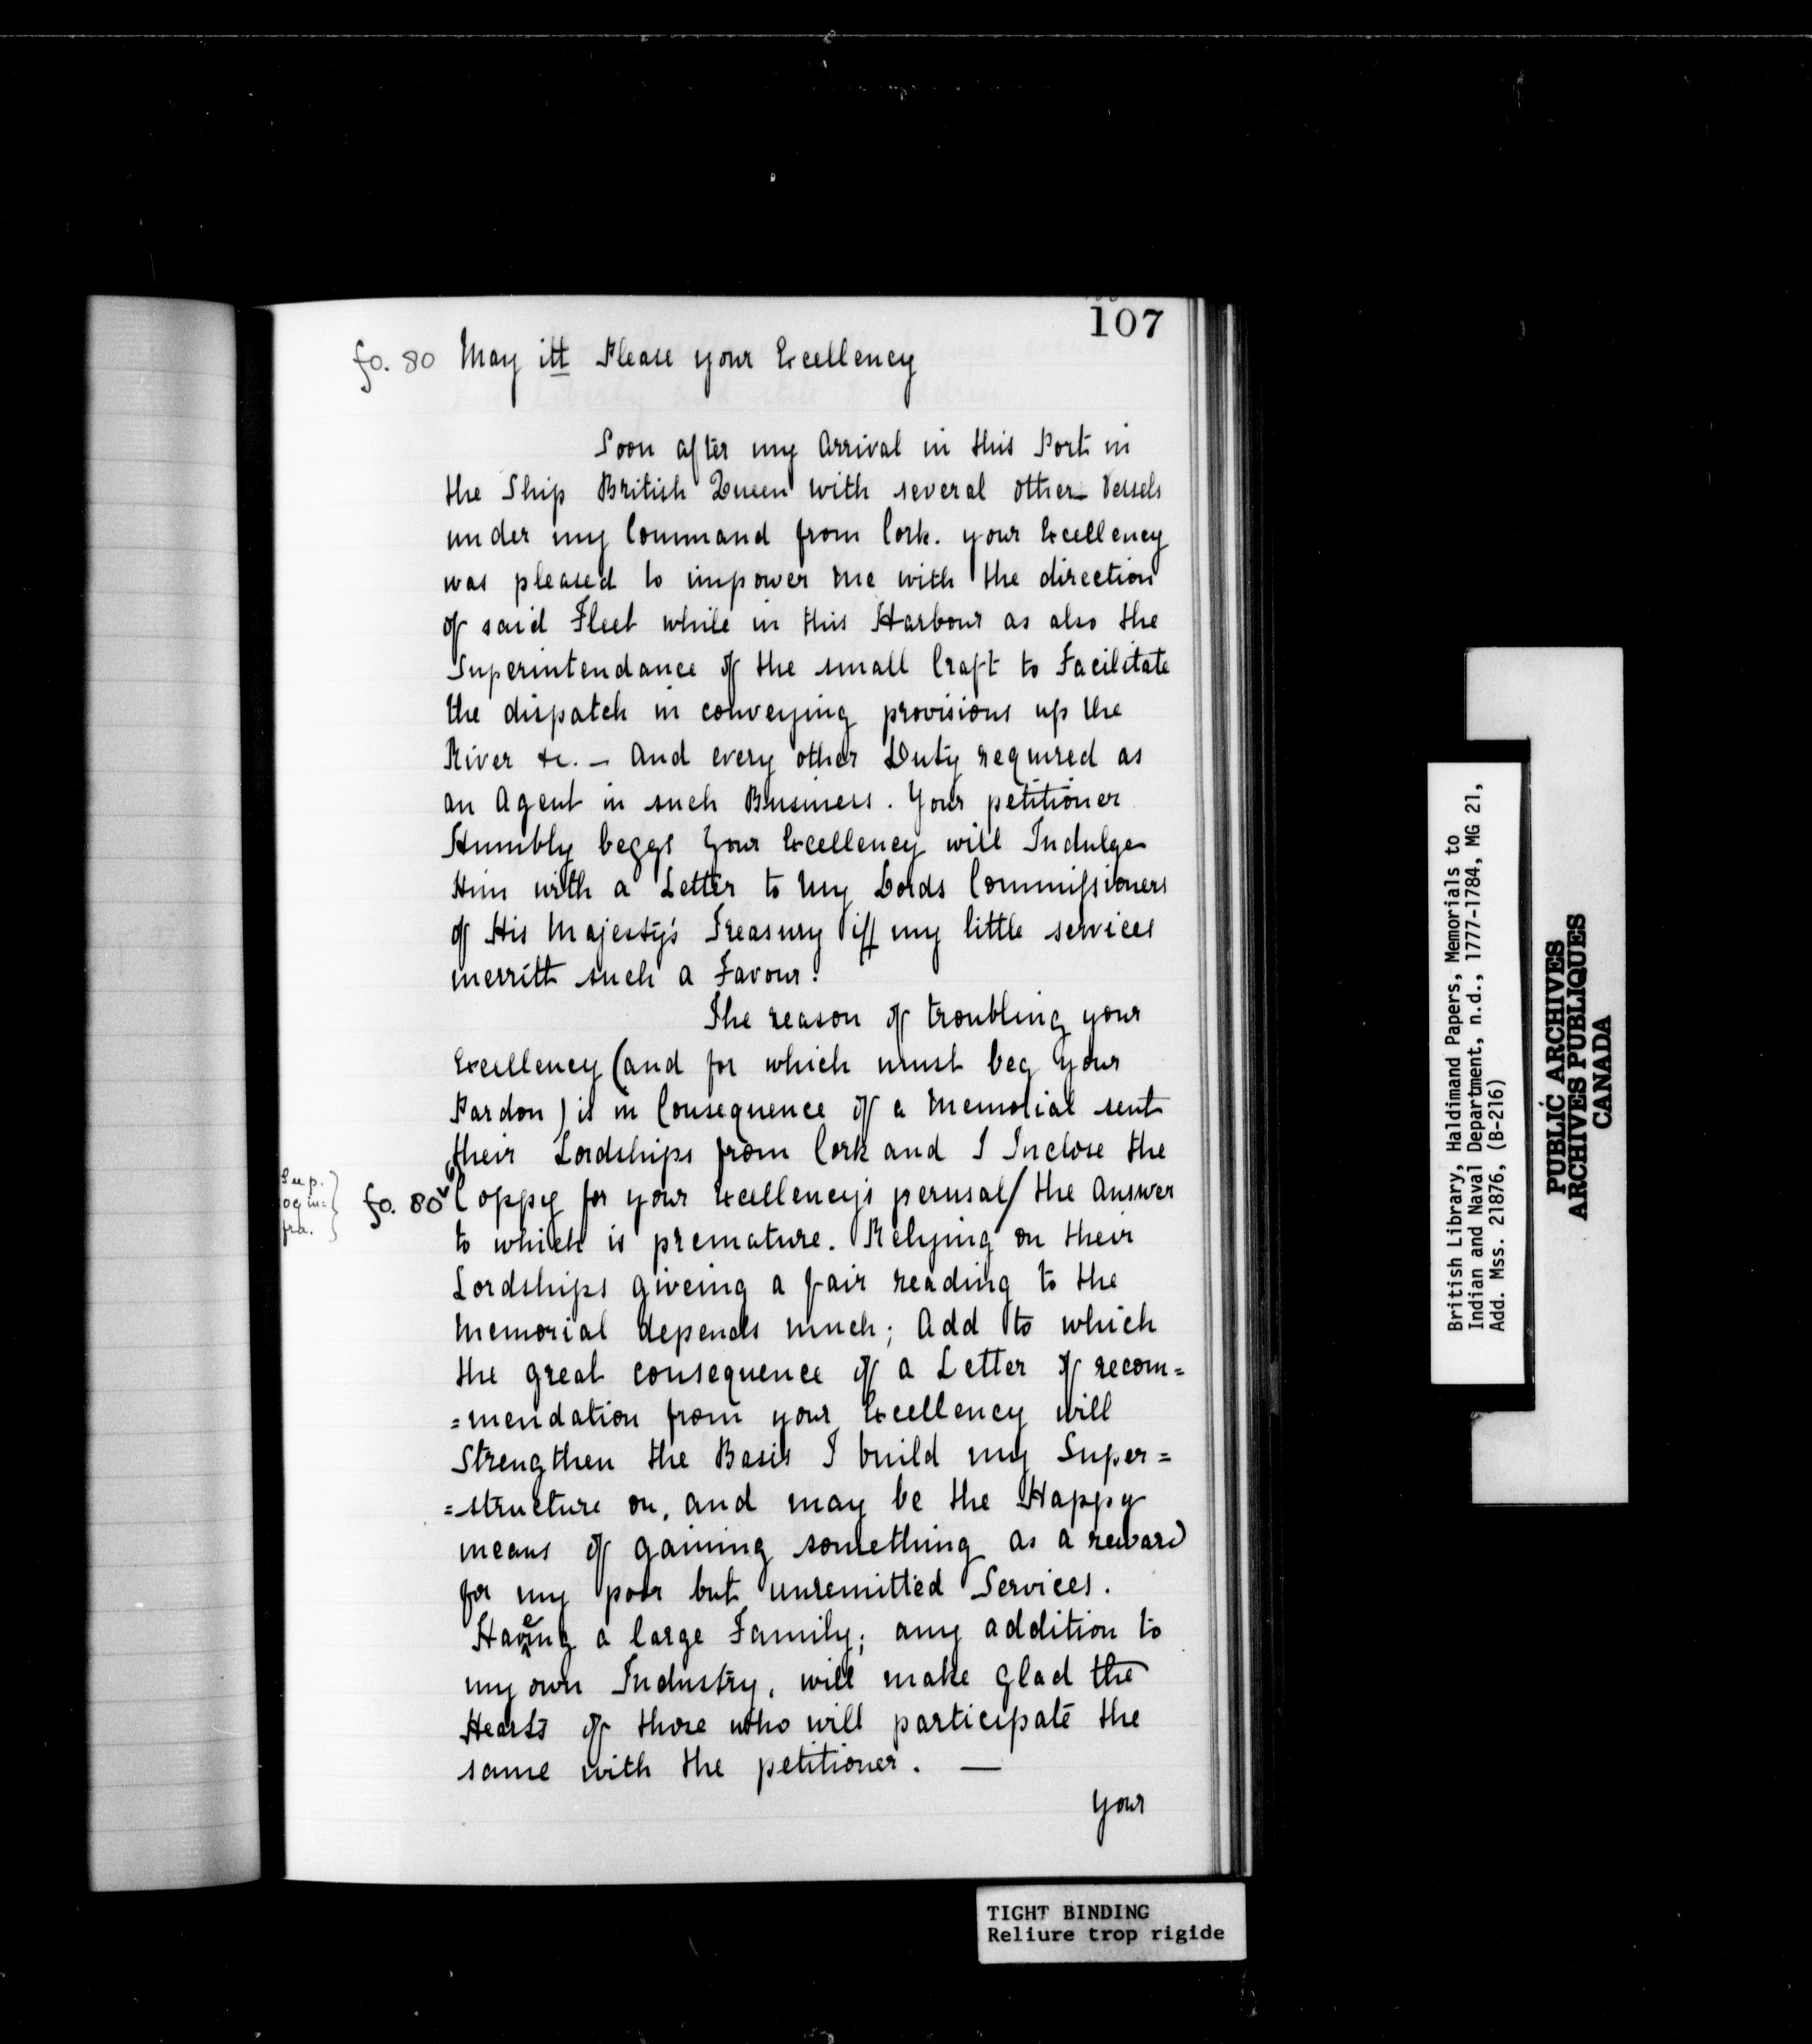 107
fo. 80 May itt Please your Excellency
Soon after my Arrival in this Port in
the Ship British Queen with several other Vessels
under my Command from Cork. your Excellency
was pleased to impower me with the direction
of said Fleet while in this Harbour as also the
Superintendance of the small Craft to Facilitate
the dispatch in conveying provisions up the
River &c. — And every other Duty required as
an Agent in such Business. Your petitioner
Humbly beggs Your Excellency will Indulge
Him with a Letter to My Lords Commissioners
of His Majesty's Treasury iff my little services
merritt such a Favour.
The reason of troubling your
Excellency (and for which must beg Your
Pardon) is in Consequence of a Memorial sent
their Lordships from Cork and I Inclose the
fo. 80 vo Coppy for your Excellency's perusal/ the Answer
to which is premature. Relying on their
Lordships giveing a fair reading to the
Memorial depends much; Add to which
the great consequence of a Letter of recom=
=mendation from your Excellency will
Strengthen the Basis I build my Super=
=structure on, and may be the Happy
means of gaining something as a reward
for my poor but unremitted Services.
Haveing a large Family; any addition to
my own Industry, will make Glad the
Hearts of those who will participate the
same with the petitioner. —
Your
TIGHT BINDING
Reliure trop rigide
British Library, Haldimand Papers, Memorials to
Indian and Naval Department, n.d., 1777-1784, MG 21,
Add. Mss. 21876, (B-216)
PUBLIC ARCHIVES
ARCHIVES PUBLIQUES
CANADA